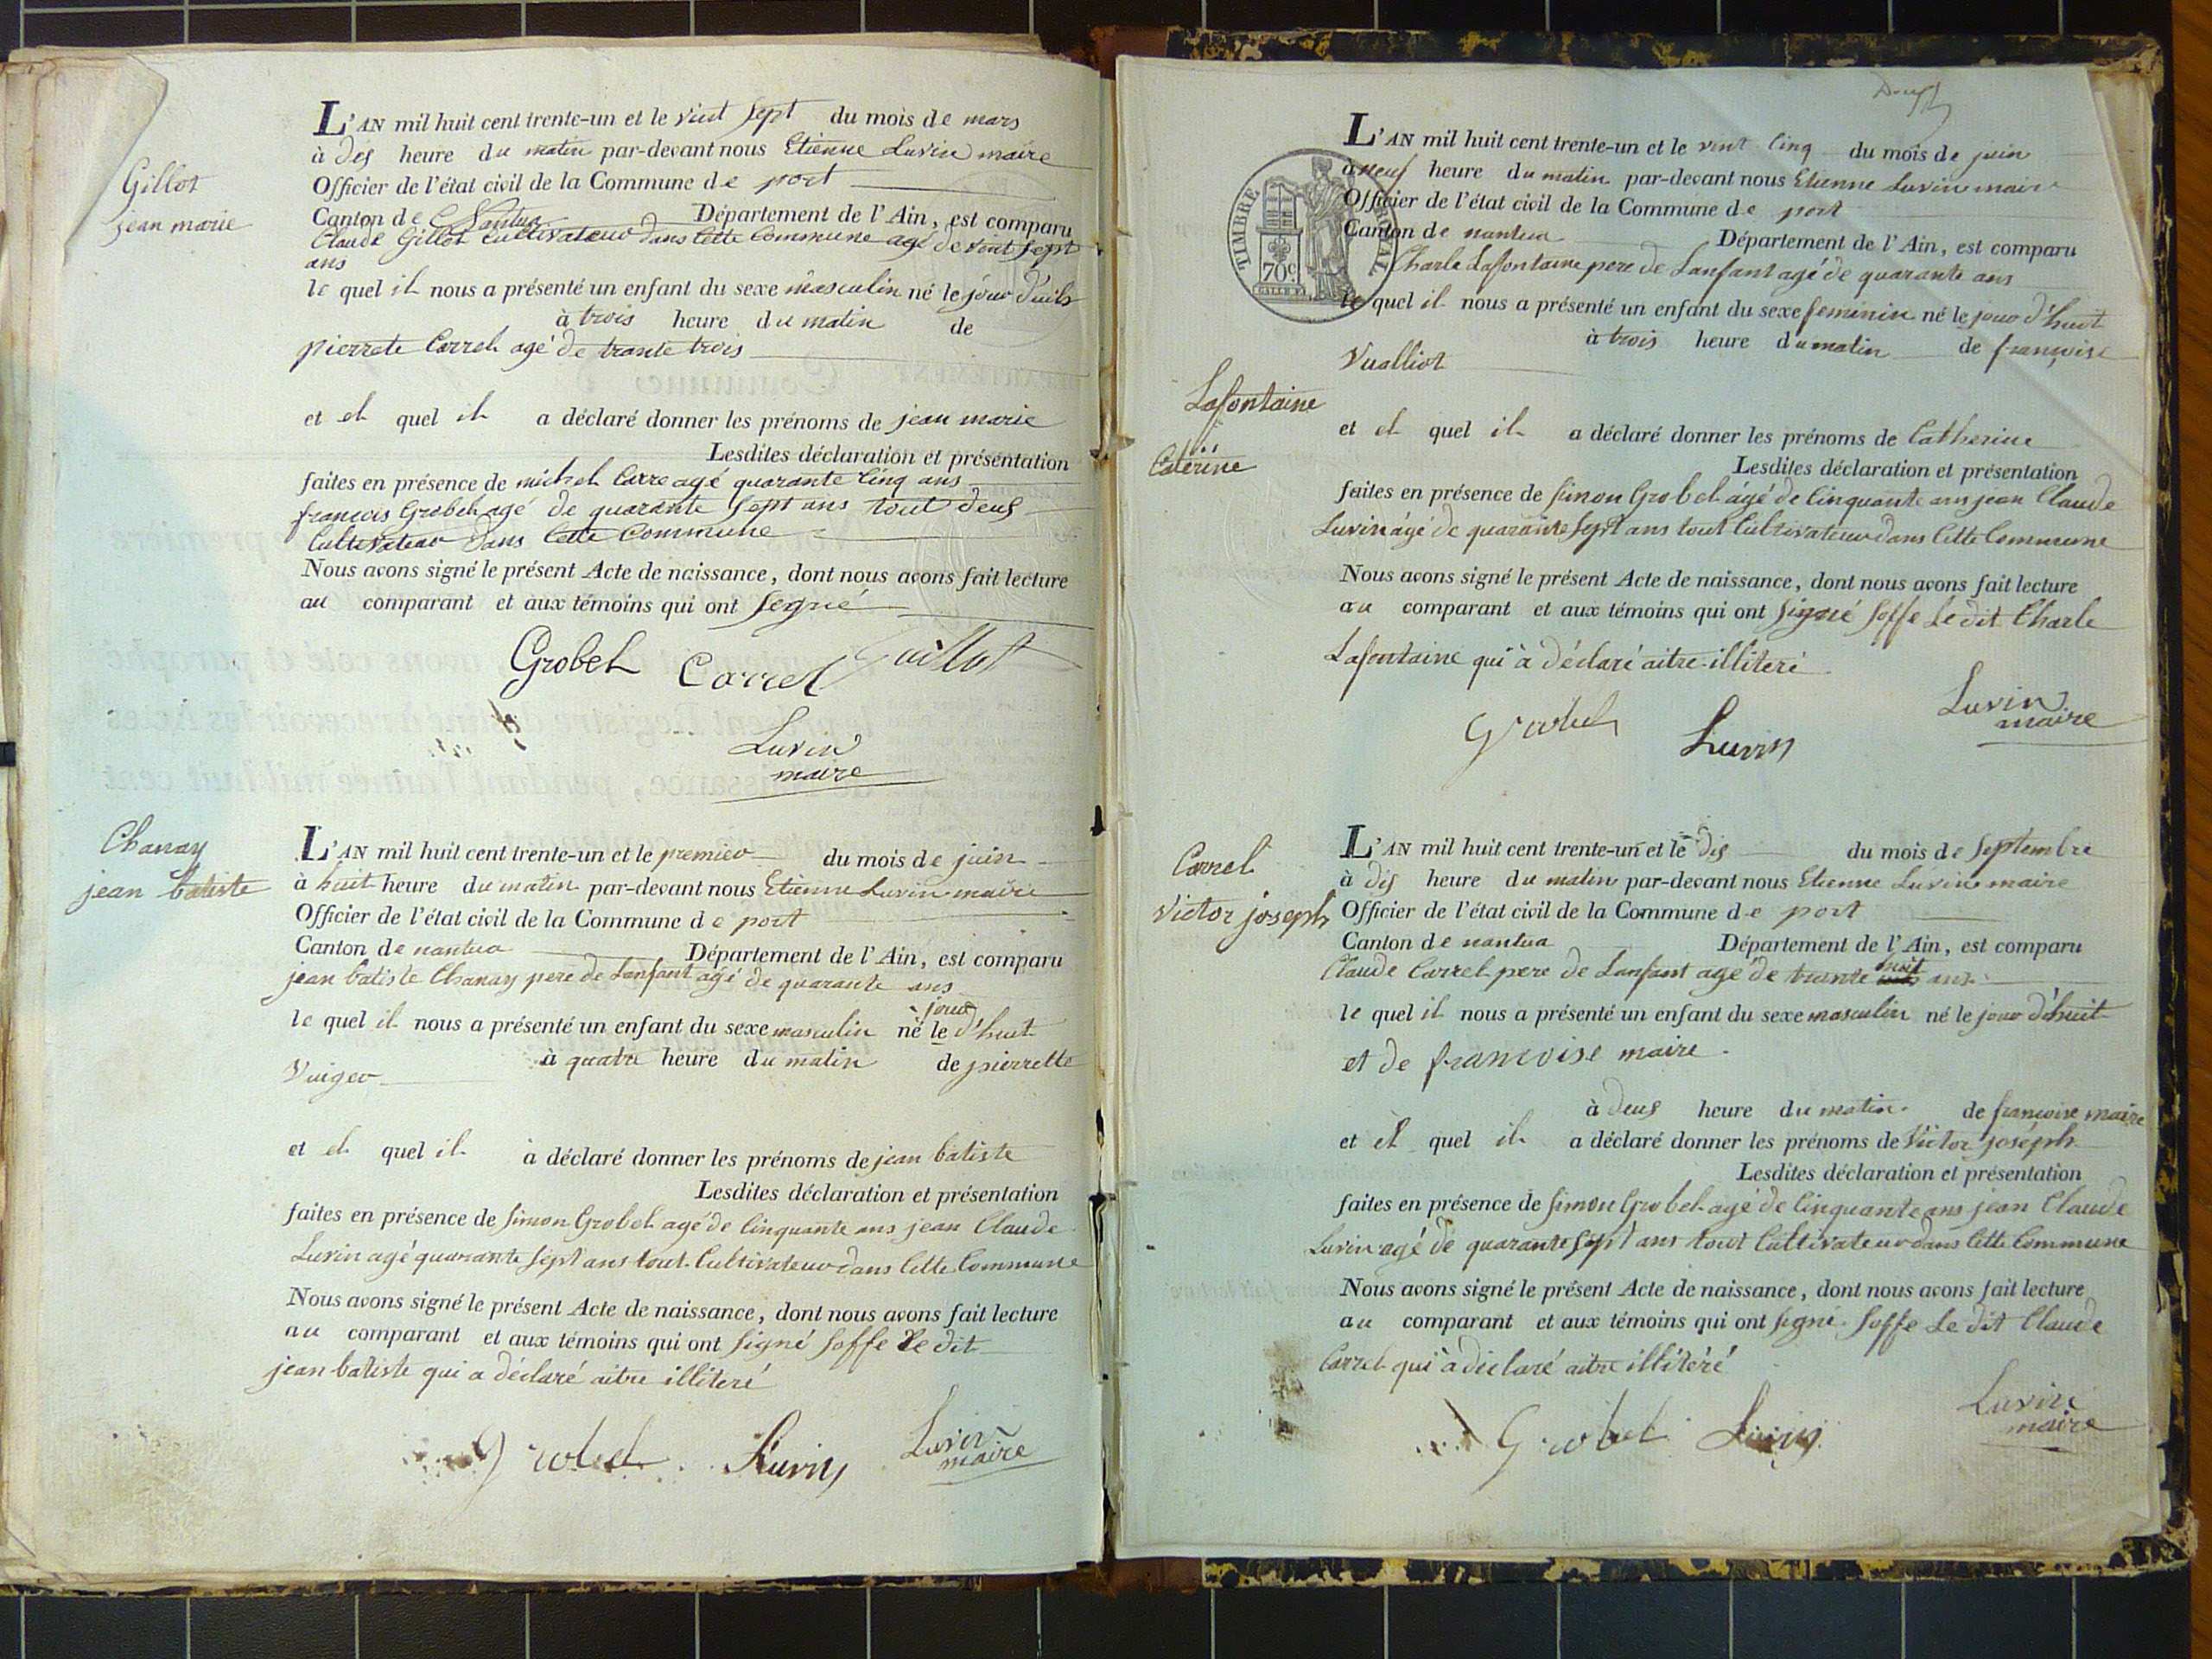 Gillot
jean marie
L'AN mil huit cent trente-un et le vint sept du mois de mars
à dis heure du matin par-devant nous Etienne Luvin maire
Officier de l'état civil de la Commune de port
Canton de Nantua Département de l'Ain, est comparu
Claude Gillot Cultivateur dans Cette Commune agé de vint sept
ans
le quel il nous a présenté un enfant du sexe masculin né le jour d'uit
à trois heure du matin de
pierrete Carrel agé de trante trois
et el quel il a déclaré donner les prénoms de jean marie
Lesdites déclaration et présentation
faites en présence de michel Carre agé quarante Cinq ans
francois Grobel agé de quarante Sept ans tout deus
Cultivateur dans Cette Commune
Nous avons signé le présent Acte de naissance, dont nous avons fait lecture
au comparant et aux témoins qui ont Segné
Grobel Carrel Guillot
Luvin
maire
Chanay
jean batiste
L'AN mil huit cent trente-un et le premier du mois de juin
à huit heure du matin par-devant nous Etienne Luvin maire
Officier de l'état civil de la Commune de port
Canton de nantua Département de l'Ain, est comparu
jean batiste Chanay pere de Lanfant agé de quarante ans
le quel il nous a présenté un enfant du sexe masculin né le jour d'huit
à quatre heure du matin de pierrette
Vuiger
et el quel il à déclaré donner les prénoms de jean batiste
Lesdites déclaration et présentation
faites en présence de Simon Grobel agé de Cinquante ans jean Claude
Luvin agé quarante Sept ans tout Cultivateur dans Cette Commune
Nous avons signé le présent Acte de naissance, dont nous avons fait lecture
au comparant et aux témoins qui ont Signé Soffe Le dit
jean batiste qui a déclaré aitre illiteré
Grobel Luvin Luvin
maire
TIMBRE ROYAL
70c
L'AN mil huit cent trente-un et le vint Cinq du mois de juin
à neuf heure du matin par-devant nous Etienne Luvin maire
Officier de l'état civil de la Commune de port
Canton de nantua Département de l'Ain, est comparu
Charle Lafontaine pere de Lanfant agé de quarante ans
le quel il nous a présenté un enfant du sexe feminin né le jour d'huit
à trois heure du matin de françoise
Vualliot
Lafontaine
Catérine
et el quel il a déclaré donner les prénoms de Catherine
Lesdites déclaration et présentation
faites en présence de Simon Grobel agé de Cinquante ans jean Claude
Luvin âgé de quarante Sept ans tout Cultivateur dans Cette Commune
Nous avons signé le présent Acte de naissance, dont nous avons fait lecture
au comparant et aux témoins qui ont Signé Soffe Le dit Charle
Lafontaine qui à déclaré aitre illiteré
Grobel Luvin Luvin
maire
Carrel
Victor joseph
L'AN mil huit cent trente-un et le dis du mois de Septembre
à dis heure du matin par-devant nous Etienne Luvin maire
Officier de l'état civil de la Commune de port
Canton de nantua Département de l'Ain, est comparu
Claude Carrel pere de Lanfant agé de trante huit ans
le quel il nous a présenté un enfant du sexe masculin né le jour d'huit
et de francoise maire
à deus heure du matin de francoise maire
et el quel il a déclaré donner les prénoms de Victor joséph
Lesdites déclaration et présentation
faites en présence de Simon Grobel agé de Cinquante ans jean Claude
Luvin agé de quarante Sept ans tout Cultivateur dans Cette Commune
Nous avons signé le présent Acte de naissance, dont nous avons fait lecture
au comparant et aux témoins qui ont Segné Soffe Le dit Claude
Carrel qui à déclaré aitre illitéré
Grobel Luvin Luvin
maire